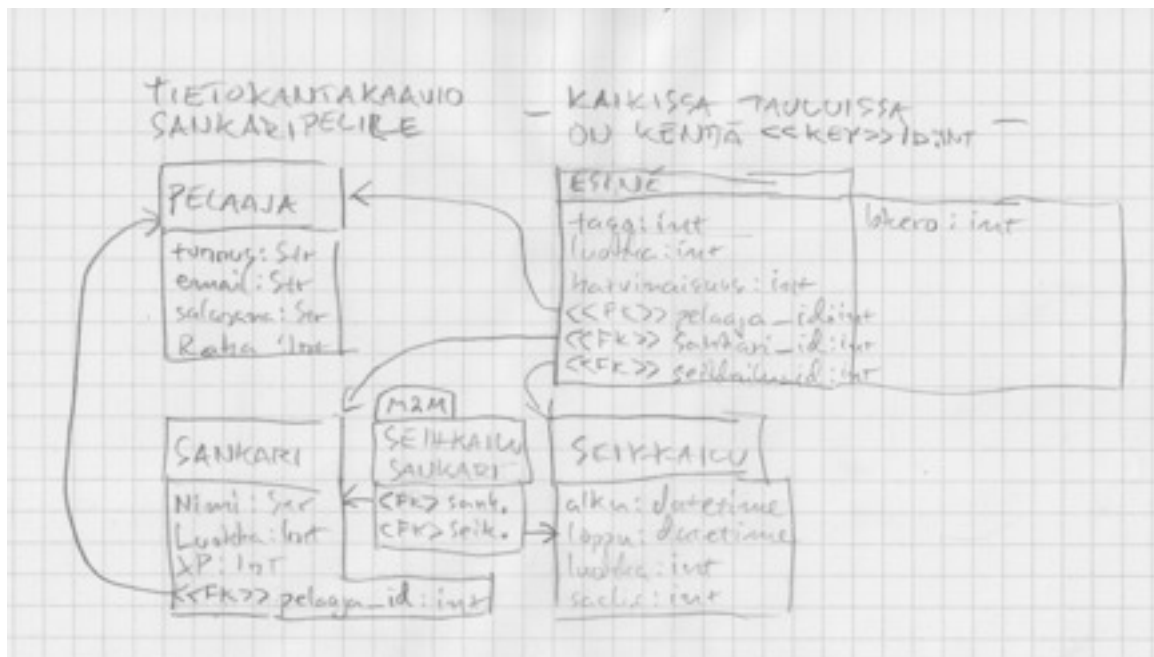 TIETOKANTAKAAVIO
SANKARIPELILLE
– KAIKISSA TAULUISSA
ON KENTTÄ <<KEY>> ID:INT –
PELAAJA
tunnus: Str
email: Str
salasana: Str
Raha: Int
ESINE
taso: int
luokka: int
harvinaisuus: int
<<FK>> pelaaja_id:int
<<FK>> Sankari_id:int
<<FK>> seikkailu_id:int
lokero: int
SANKARI
Nimi: Str
Luokka: Int
XP: Int
<<FK>> pelaaja_id: int
M2M
SEIKKAILU
SANKARI
<FK> sank.
<FK> seik.
SEIKKAILU
alku: datetime
loppu: datetime
luokka: int
: int